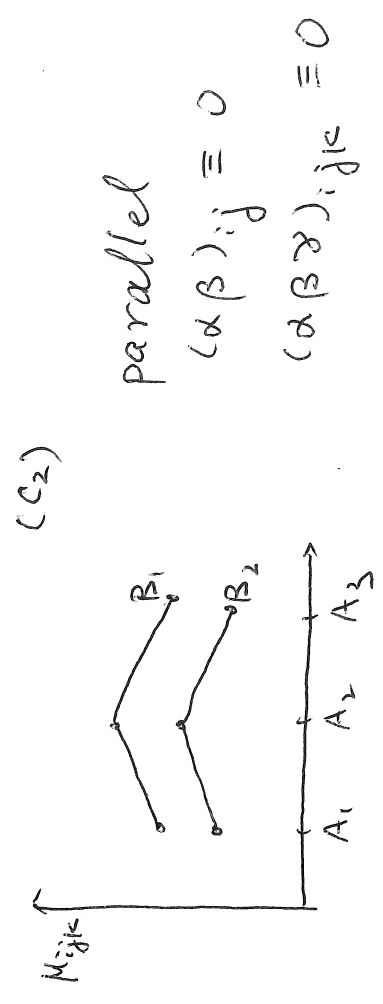 (C₂)
μijk
B₁
B₂
A₁ A₂ A₃
parallel
(αβ)ij ≡ 0
(αβγ)ijk ≡ 0